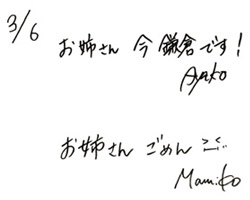 3/6
お姉さん 今 鎌倉です!
Ayako
お姉さん ごめん
Mamiko